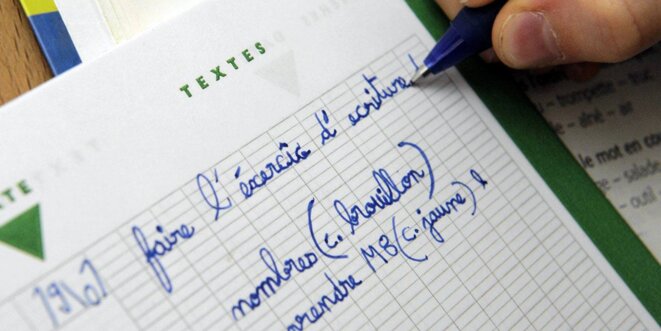 TEXTES
faire l'éxercic d'ecriture!
nombres (c. brouillon)
prendre M8 (c. jaune)!
trompette - truc
- aîné - air
le mot en cou
- salade
- outil